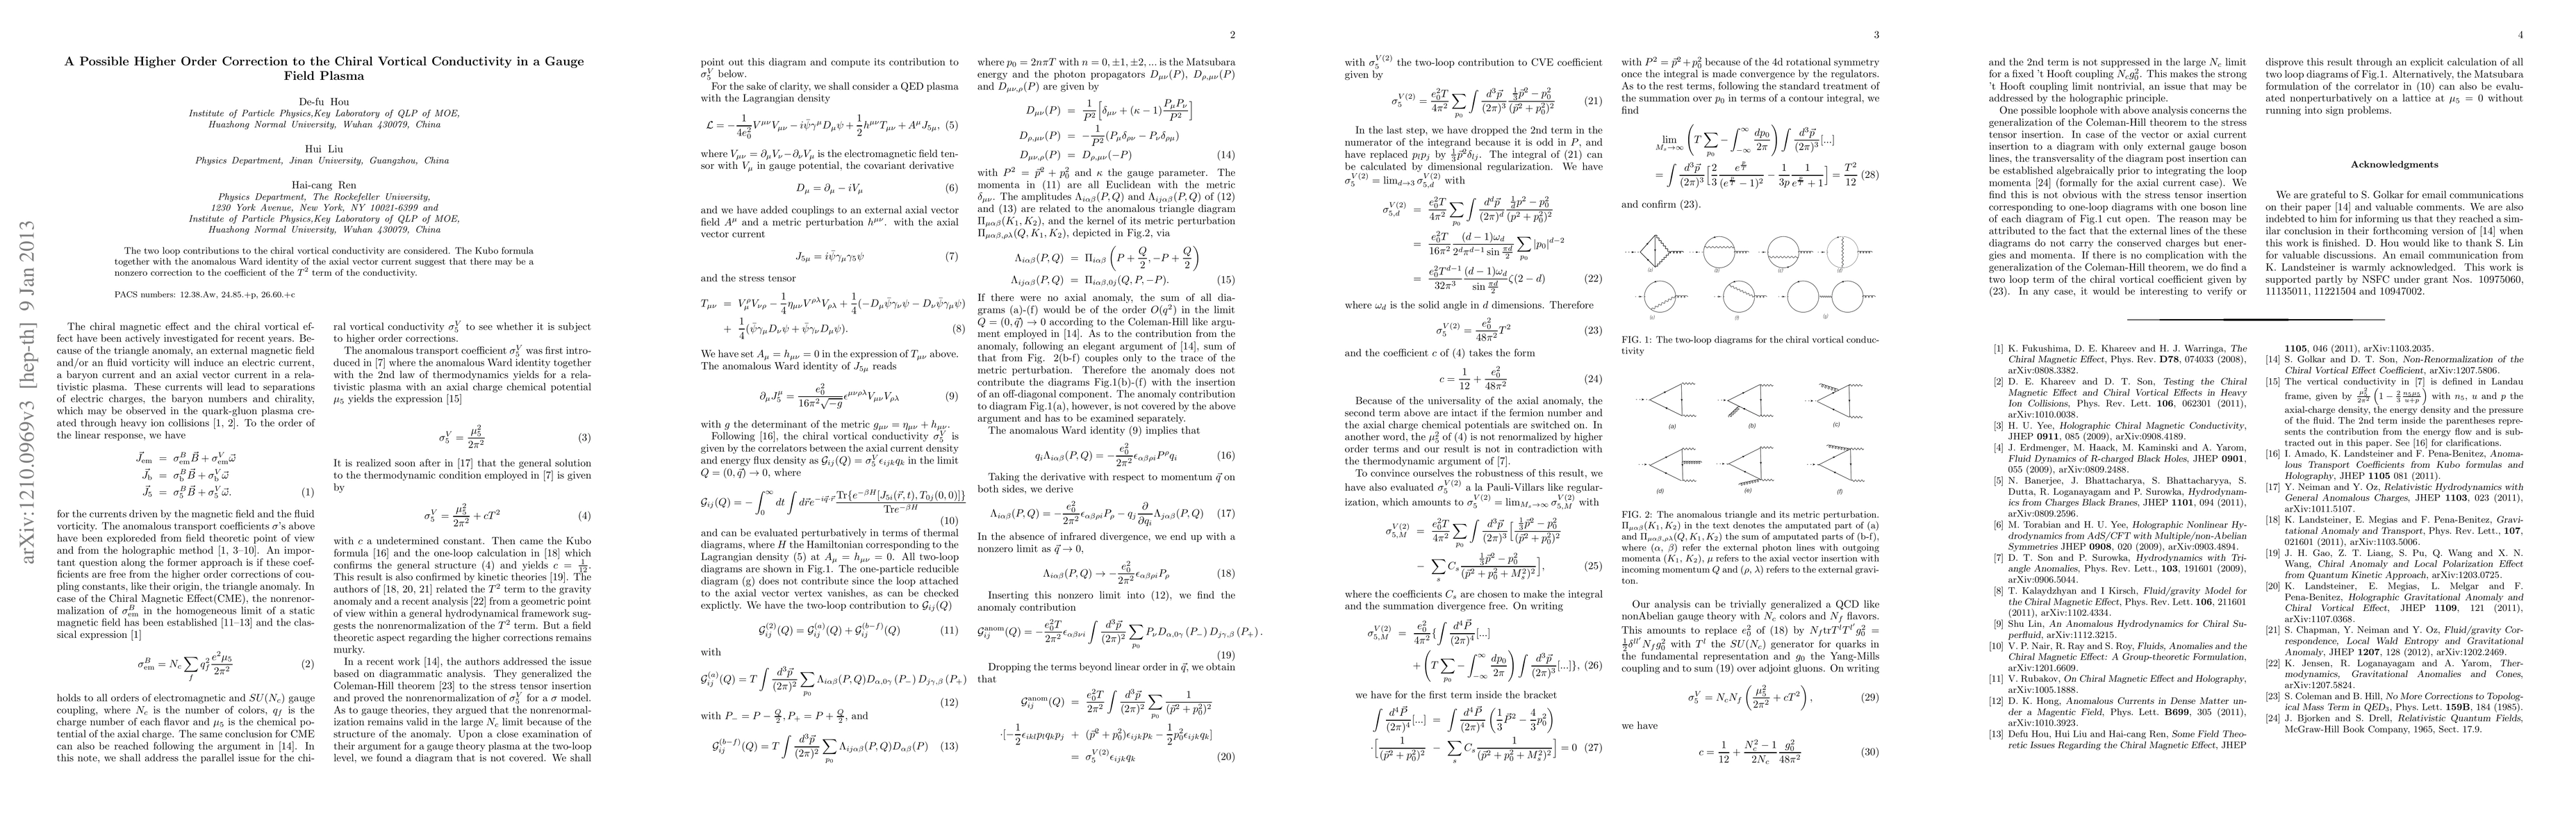 arXiv:1210.0969v3 [hep-th] 9 Jan 2013
A Possible Higher Order Correction to the Chiral Vortical Conductivity in a Gauge
Field Plasma
De-fu Hou
Institute of Particle Physics,Key Laboratory of QLP of MOE,
Huazhong Normal University, Wuhan 430079, China
Hui Liu
Physics Department, Jinan University, Guangzhou, China
Hai-cang Ren
Physics Department, The Rockefeller University,
1230 York Avenue, New York, NY 10021-6399 and
Institute of Particle Physics,Key Laboratory of QLP of MOE,
Huazhong Normal University, Wuhan 430079, China
The two loop contributions to the chiral vortical conductivity are considered. The Kubo formula
together with the anomalous Ward identity of the axial vector current suggest that there may be a
nonzero correction to the coefficient of the T² term of the conductivity.
PACS numbers: 12.38.Aw, 24.85.+p, 26.60.+c
The chiral magnetic effect and the chiral vortical ef-
fect have been actively investigated for recent years. Be-
cause of the triangle anomaly, an external magnetic field
and/or an fluid vorticity will induce an electric current,
a baryon current and an axial vector current in a rela-
tivistic plasma. These currents will lead to separations
of electric charges, the baryon numbers and chirality,
which may be observed in the quark-gluon plasma cre-
ated through heavy ion collisions [1, 2]. To the order of
the linear response, we have
J⃗em = σ^B_em B⃗ + σ^V_em ω⃗
J⃗b = σ^B_b B⃗ + σ^V_b ω⃗
J⃗5 = σ^B_5 B⃗ + σ^V_5 ω⃗. (1)
for the currents driven by the magnetic field and the fluid
vorticity. The anomalous transport coefficients σ's above
have been exploreded from field theoretic point of view
and from the holographic method [1, 3–10]. An impor-
tant question along the former approach is if these coef-
ficients are free from the higher order corrections of cou-
pling constants, like their origin, the triangle anomaly. In
case of the Chiral Magnetic Effect(CME), the nonrenor-
malization of σ^B_em in the homogeneous limit of a static
magnetic field has been established [11–13] and the clas-
sical expression [1]
σ^B_em = N_c Σ_f q_f² e²μ5/2π² (2)
holds to all orders of electromagnetic and SU(N_c) gauge
coupling, where N_c is the number of colors, q_f is the
charge number of each flavor and μ5 is the chemical po-
tential of the axial charge. The same conclusion for CME
can also be reached following the argument in [14]. In
this note, we shall address the parallel issue for the chi-
ral vortical conductivity σ^V_5 to see whether it is subject
to higher order corrections.
The anomalous transport coefficient σ^V_5 was first intro-
duced in [7] where the anomalous Ward identity together
with the 2nd law of thermodynamics yields for a rela-
tivistic plasma with an axial charge chemical potential
μ5 yields the expression [15]
σ^V_5 = μ5²/2π² (3)
It is realized soon after in [17] that the general solution
to the thermodynamic condition employed in [7] is given
by
σ^V_5 = μ5²/2π² + cT² (4)
with c a undetermined constant. Then came the Kubo
formula [16] and the one-loop calculation in [18] which
confirms the general structure (4) and yields c = 1/12.
This result is also confirmed by kinetic theories [19]. The
authors of [18, 20, 21] related the T² term to the gravity
anomaly and a recent analysis [22] from a geometric point
of view within a general hydrodynamical framework sug-
gests the nonrenormalization of the T² term. But a field
theoretic aspect regarding the higher corrections remains
murky.
In a recent work [14], the authors addressed the issue
based on diagrammatic analysis. They generalized the
Coleman-Hill theorem [23] to the stress tensor insertion
and proved the nonrenormalization of σ^V_5 for a σ model.
As to gauge theories, they argued that the nonrenormal-
ization remains valid in the large N_c limit because of the
structure of the anomaly. Upon a close examination of
their argument for a gauge theory plasma at the two-loop
level, we found a diagram that is not covered. We shall
2
point out this diagram and compute its contribution to
σ^V_5 below.
For the sake of clarity, we shall consider a QED plasma
with the Lagrangian density
L = −1/4e0² V^μν V_μν − iψ̄γ^μ D_μψ + 1/2 h^μν T_μν + A^μ J_5μ, (5)
where V_μν = ∂_μV_ν − ∂_νV_μ is the electromagnetic field ten-
sor with V_μ in gauge potential, the covariant derivative
D_μ = ∂_μ − iV_μ (6)
and we have added couplings to an external axial vector
field A^μ and a metric perturbation h^μν. with the axial
vector current
J_5μ = iψ̄γ_μγ_5ψ (7)
and the stress tensor
T_μν = V^ρ_μ V_νρ − 1/4 η_μν V^ρλ V_ρλ + 1/4(−D_μψ̄γ_νψ − D_νψ̄γ_μψ)
+ 1/4(ψ̄γ_μD_νψ + ψ̄γ_νD_μψ). (8)
We have set A_μ = h_μν = 0 in the expression of T_μν above.
The anomalous Ward identity of J_5μ reads
∂_μJ^μ_5 = e0²/16π²√−g ε^μνρλ V_μν V_ρλ (9)
with g the determinant of the metric g_μν = η_μν + h_μν.
Following [16], the chiral vortical conductivity σ^V_5 is
given by the correlators between the axial current density
and energy flux density as G_ij(Q) = σ^V_5 ε_ijk q_k in the limit
Q = (0, q⃗) → 0, where
G_ij(Q) = −∫_0^∞ dt ∫ dr⃗ e^{−iq⃗·r⃗} Tr{e^{−βH}[J_5i(r⃗,t), T_0j(0,0)]}/Tre^{−βH}
(10)
and can be evaluated perturbatively in terms of thermal
diagrams, where H the Hamiltonian corresponding to the
Lagrangian density (5) at A_μ = h_μν = 0. All two-loop
diagrams are shown in Fig.1. The one-particle reducible
diagram (g) does not contribute since the loop attached
to the axial vector vertex vanishes, as can be checked
explicitly. We have the two-loop contribution to G_ij(Q)
G^(2)_ij(Q) = G^(a)_ij(Q) + G^(b−f)_ij(Q) (11)
with
G^(a)_ij(Q) = T ∫ d³p⃗/(2π)³ Σ_p0 Λ_iαβ(P, Q) D_α,0γ(P_−) D_jγ,β(P_+)
(12)
with P_− = P − Q/2, P_+ = P + Q/2, and
G^(b−f)_ij(Q) = T ∫ d³p⃗/(2π)³ Σ_p0 Λ_ijαβ(P, Q) D_αβ(P) (13)
where p0 = 2nπT with n = 0, ±1, ±2, ... is the Matsubara
energy and the photon propagators D_μν(P), D_ρ,μν(P)
and D_μν,ρ(P) are given by
D_μν(P) = 1/P² [δ_μν + (κ − 1) P_μP_ν/P²]
D_ρ,μν(P) = −1/P² (P_μδ_ρν − P_νδ_ρμ)
D_μν,ρ(P) = D_ρ,μν(−P) (14)
with P² = p⃗² + p0² and κ the gauge parameter. The
momenta in (11) are all Euclidean with the metric
δ_μν. The amplitudes Λ_iαβ(P, Q) and Λ_ijαβ(P, Q) of (12)
and (13) are related to the anomalous triangle diagram
Π_μαβ(K1, K2), and the kernel of its metric perturbation
Π_μαβ,ρλ(Q, K1, K2), depicted in Fig.2, via
Λ_iαβ(P, Q) = Π_iαβ (P + Q/2, −P + Q/2)
Λ_ijαβ(P, Q) = Π_iαβ,0j(Q, P, −P). (15)
If there were no axial anomaly, the sum of all dia-
grams (a)-(f) would be of the order O(q²) in the limit
Q = (0, q⃗) → 0 according to the Coleman-Hill like argu-
ment employed in [14]. As to the contribution from the
anomaly, following an elegant argument of [14], sum of
that from Fig. 2(b-f) couples only to the trace of the
metric perturbation. Therefore the anomaly does not
contribute the diagrams Fig.1(b)-(f) with the insertion
of an off-diagonal component. The anomaly contribution
to diagram Fig.1(a), however, is not covered by the above
argument and has to be examined separately.
The anomalous Ward identity (9) implies that
q_iΛ_iαβ(P, Q) = −e0²/2π² ε_αβρi P^ρ q_i (16)
Taking the derivative with respect to momentum q⃗ on
both sides, we derive
Λ_iαβ(P, Q) = −e0²/2π² ε_αβρi P_ρ − q_j ∂/∂q_i Λ_jαβ(P, Q) (17)
In the absence of infrared divergence, we end up with a
nonzero limit as q⃗ → 0,
Λ_iαβ(P, Q) → −e0²/2π² ε_αβρi P_ρ (18)
Inserting this nonzero limit into (12), we find the
anomaly contribution
G^anom_ij(Q) = −e0²T/2π² ε_αβνi ∫ d³p⃗/(2π)³ Σ_p0 P_ν D_α,0γ(P_−) D_jγ,β(P_+).
(19)
Dropping the terms beyond linear order in q⃗, we obtain
that
G^anom_ij(Q) = e0²T/2π² ∫ d³p⃗/(2π)³ Σ_p0 1/(p⃗² + p0²)²
·[−1/2 ε_ikl p_l q_k p_j + (p⃗² + p0²)ε_ijk p_k − 1/2 p0² ε_ijk q_k]
= σ^V(2)_5 ε_ijk q_k (20)
3
with σ^V(2)_5 the two-loop contribution to CVE coefficient
given by
σ^V(2)_5 = e0²T/4π² Σ_p0 ∫ d³p⃗/(2π)³ (1/3 p⃗² − p0²)/(p⃗² + p0²)² (21)
In the last step, we have dropped the 2nd term in the
numerator of the integrand because it is odd in P, and
have replaced p_lp_j by 1/3 p⃗²δ_lj. The integral of (21) can
be calculated by dimensional regularization. We have
σ^V(2)_5 = lim_{d→3} σ^V(2)_5,d with
σ^V(2)_5,d = e0²T/4π² Σ_p0 ∫ d^dp⃗/(2π)^d (1/d p² − p0²)/(p² + p0²)²
= e0²T/16π² (d − 1)ω_d/(2^d π^{d−1} sin πd/2) Σ_p0 |p0|^{d−2}
= e0²T^{d−1}/32π³ (d − 1)ω_d/(sin πd/2) ζ(2 − d) (22)
where ω_d is the solid angle in d dimensions. Therefore
σ^V(2)_5 = e0²/48π² T² (23)
and the coefficient c of (4) takes the form
c = 1/12 + e0²/48π² (24)
Because of the universality of the axial anomaly, the
second term above are intact if the fermion number and
the axial charge chemical potentials are switched on. In
another word, the μ5² of (4) is not renormalized by higher
order terms and our result is not in contradiction with
the thermodynamic argument of [7].
To convince ourselves the robustness of this result, we
have also evaluated σ^V(2)_5 a la Pauli-Villars like regular-
ization, which amounts to σ^V(2)_5 = lim_{Ms→∞} σ^V(2)_5,M with
σ^V(2)_5,M = e0²T/4π² Σ_p0 ∫ d³p⃗/(2π)³ [(1/3 p⃗² − p0²)/(p⃗² + p0²)²
− Σ_s C_s (1/3 p⃗² − p0²)/(p⃗² + p0² + M_s²)²], (25)
where the coefficients C_s are chosen to make the integral
and the summation divergence free. On writing
σ^V(2)_5,M = e0²/4π² {∫ d⁴P⃗/(2π)⁴ [...]
+ (T Σ_p0 − ∫_−∞^∞ dp0/2π) ∫ d³p⃗/(2π)³ [...]}, (26)
we have for the first term inside the bracket
∫ d⁴P⃗/(2π)⁴ [...] = ∫ d⁴P⃗/(2π)⁴ (1/3 P⃗² − 4/3 p0²)
·[1/(p⃗² + p0²)² − Σ_s C_s 1/(p⃗² + p0² + M_s²)²] = 0 (27)
with P² = p⃗² + p0² because of the 4d rotational symmetry
once the integral is made convergence by the regulators.
As to the rest terms, following the standard treatment of
the summation over p0 in terms of a contour integral, we
find
lim_{Ms→∞} (T Σ_p0 − ∫_−∞^∞ dp0/2π) ∫ d³p⃗/(2π)³ [...]
= ∫ d³p⃗/(2π)³ [2/3 e^{p/T}/(e^{p/T} − 1)² − 1/3p 1/(e^{p/T} + 1)] = T²/12 (28)
and confirm (23).
(a) (b) (c) (d)
(e) (f) (g)
FIG. 1: The two-loop diagrams for the chiral vortical conduc-
tivity
(a) (b) (c)
(d) (e) (f)
FIG. 2: The anomalous triangle and its metric perturbation.
Π_μαβ(K1, K2) in the text denotes the amputated part of (a)
and Π_μαβ,ρλ(Q, K1, K2) the sum of amputated parts of (b-f),
where (α, β) refer the external photon lines with outgoing
momenta (K1, K2), μ refers to the axial vector insertion with
incoming momentum Q and (ρ, λ) refers to the external gravi-
ton.
Our analysis can be trivially generalized a QCD like
nonAbelian gauge theory with N_c colors and N_f flavors.
This amounts to replace e0² of (18) by N_f trT^l T^l' g0² =
1/2 δ^ll' N_f g0² with T^l the SU(N_c) generator for quarks in
the fundamental representation and g0 the Yang-Mills
coupling and to sum (19) over adjoint gluons. On writing
σ^V_5 = N_c N_f (μ5²/2π² + cT²), (29)
we have
c = 1/12 + (N_c² − 1)/2N_c g0²/48π² (30)
4
and the 2nd term is not suppressed in the large N_c limit
for a fixed 't Hooft coupling N_c g0². This makes the strong
't Hooft coupling limit nontrivial, an issue that may be
addressed by the holographic principle.
One possible loophole with above analysis concerns the
generalization of the Coleman-Hill theorem to the stress
tensor insertion. In case of the vector or axial current
insertion to a diagram with only external gauge boson
lines, the transversality of the diagram post insertion can
be established algebraically prior to integrating the loop
momenta [24] (formally for the axial current case). We
find this is not obvious with the stress tensor insertion
corresponding to one-loop diagrams with one boson line
of each diagram of Fig.1 cut open. The reason may be
attributed to the fact that the external lines of the these
diagrams do not carry the conserved charges but ener-
gies and momenta. If there is no complication with the
generalization of the Coleman-Hill theorem, we do find a
two loop term of the chiral vortical coefficient given by
(23). In any case, it would be interesting to verify or
disprove this result through an explicit calculation of all
two loop diagrams of Fig.1. Alternatively, the Matsubara
formulation of the correlator in (10) can also be evalu-
ated nonperturbatively on a lattice at μ5 = 0 without
running into sign problems.
Acknowledgments
We are grateful to S. Golkar for email communications
on their paper [14] and valuable comments. We are also
indebted to him for informing us that they reached a sim-
ilar conclusion in their forthcoming version of [14] when
when this work is finished. D. Hou would like to thank S. Lin
for valuable discussions. An email communication from
K. Landsteiner is warmly acknowledged. This work is
supported partly by NSFC under grant Nos. 10975060,
11135011, 11221504 and 10947002.
[1] K. Fukushima, D. E. Khareev and H. J. Warringa, The
Chiral Magnetic Effect, Phys. Rev. D78, 074033 (2008),
arXiv:0808.3382.
[2] D. E. Khareev and D. T. Son, Testing the Chiral
Magnetic Effect and Chiral Vortical Effects in Heavy
Ion Collisions, Phys. Rev. Lett. 106, 062301 (2011),
arXiv:1010.0038.
[3] H. U. Yee, Holographic Chiral Magnetic Conductivity,
JHEP 0911, 085 (2009), arXiv:0908.4189.
[4] J. Erdmenger, M. Haack, M. Kaminski and A. Yarom,
Fluid Dynamics of R-charged Black Holes, JHEP 0901,
055 (2009), arXiv:0809.2488.
[5] N. Banerjee, J. Bhattacharya, S. Bhattacharyya, S.
Dutta, R. Loganayagam and P. Surowka, Hydrodynam-
ics from Charges Black Branes, JHEP 1101, 094 (2011),
arXiv:0809.2596.
[6] M. Torabian and H. U. Yee, Holographic Nonlinear Hy-
drodynamics from AdS/CFT with Multiple/non-Abelian
Symmetries JHEP 0908, 020 (2009), arXiv:0903.4894.
[7] D. T. Son and P. Surowka, Hydrodynamics with Tri-
angle Anomalies, Phys. Rev. Lett., 103, 191601 (2009),
arXiv:0906.5044.
[8] T. Kalaydzhyan and I Kirsch, Fluid/gravity Model for
the Chiral Magnetic Effect, Phys. Rev. Lett. 106, 211601
(2011), arXiv:1102.4334.
[9] Shu Lin, An Anomalous Hydrodynamics for Chiral Su-
perfluid, arXiv:1112.3215.
[10] V. P. Nair, R. Ray and S. Roy, Fluids, Anomalies and the
Chiral Magnetic Effect: A Group-theoretic Formulation,
arXiv:1201.6609.
[11] V. Rubakov, On Chiral Magnetic Effect and Holography,
arXiv:1005.1888.
[12] D. K. Hong, Anomalous Currents in Dense Matter un-
der a Magentic Field, Phys. Lett. B699, 305 (2011),
arXiv:1010.3923.
[13] Defu Hou, Hui Liu and Hai-cang Ren, Some Field Theo-
retic Issues Regarding the Chiral Magnetic Effect, JHEP
1105, 046 (2011), arXiv:1103.2035.
[14] S. Golkar and D. T. Son, Non-Renormalization of the
Chiral Vortical Effect Coefficient, arXiv:1207.5806.
[15] The vertical conductivity in [7] is defined in Landau
frame, given by μ5²/2π² (1 − 2/3 n5μ5/(u+p)) with n5, u and p the
axial-charge density, the energy density and the pressure
of the fluid. The 2nd term inside the parentheses repre-
sents the contribution from the energy flow and is sub-
tracted out in this paper. See [16] for clarifications.
[16] I. Amado, K. Landsteiner and F. Pena-Benitez, Anoma-
lous Transport Coefficients from Kubo formulas and
Holography, JHEP 1105 081 (2011).
[17] Y. Neiman and Y. Oz, Relativistic Hydrodynamics with
General Anomalous Charges, JHEP 1103, 023 (2011),
arXiv:1011.5107.
[18] K. Landsteiner, E. Megias and F. Pena-Benitez, Gravi-
tational Anomaly and Transport, Phys. Rev. Lett., 107,
021601 (2011), arXiv:1103.5006.
[19] J. H. Gao, Z. T. Liang, S. Pu, Q. Wang and X. N.
Wang, Chiral Anomaly and Local Polarization Effect
from Quantum Kinetic Approach, arXiv:1203.0725.
[20] K. Landsteiner, E. Megias, I. Melgar and F.
Pena-Benitez, Holographic Gravitational Anomaly and
Chiral Vortical Effect, JHEP 1109, 121 (2011),
arXiv:1107.0368.
[21] S. Chapman, Y. Neiman and Y. Oz, Fluid/gravity Cor-
respondence, Local Wald Entropy and Gravitational
Anomaly, JHEP 1207, 128 (2012), arXiv:1202.2469.
[22] K. Jensen, R. Loganayagam and A. Yarom, Ther-
modynamics, Gravitational Anomalies and Cones,
arXiv:1207.5824.
[23] S. Coleman and B. Hill, No More Corrections to Topolog-
ical Mass Term in QED3, Phys. Lett. 159B, 184 (1985).
[24] J. Bjorken and S. Drell, Relativistic Quantum Fields,
McGraw-Hill Book Company, 1965, Sect. 17.9.